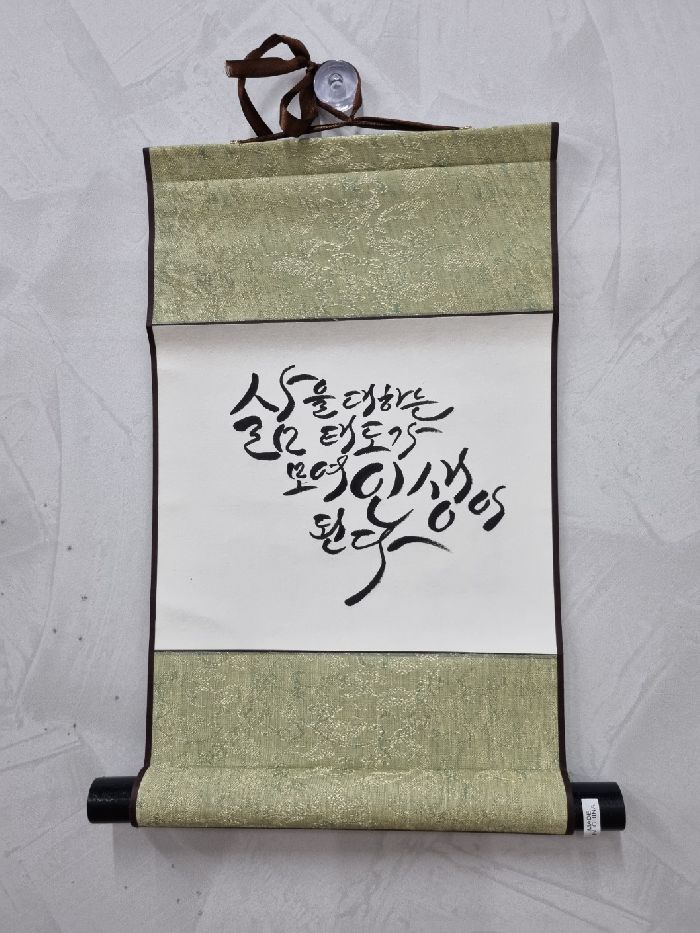 삶을 대하는
태도가
모여 인생이
된다
MADE
IN CHINA